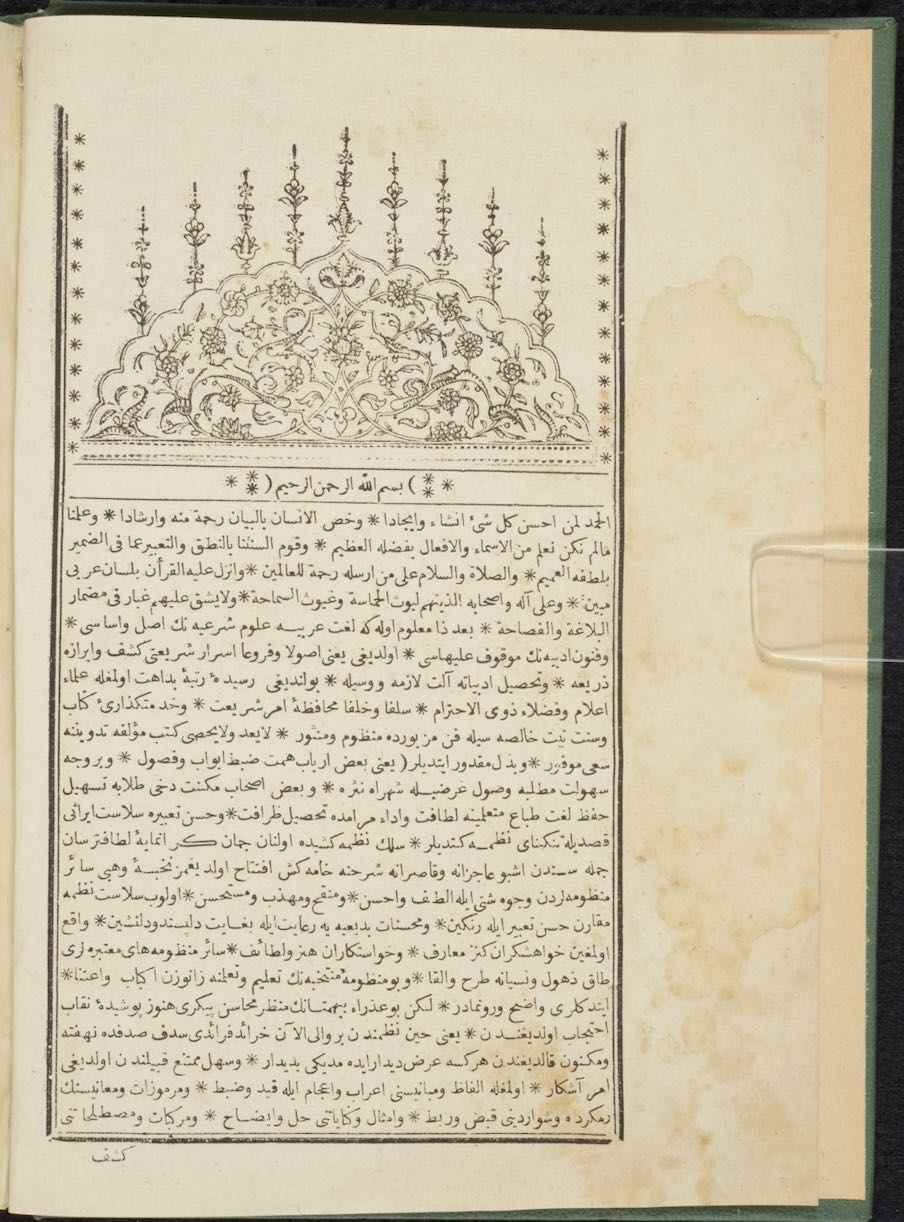 بسم الله الرحمن الرحيم
الحمد لمن احسن كل شئ انشاء وايجادا * وخص الانسان بالبيان رحمة منه وارشادا * وعلمنا
مالم نكن نعلم من الاسماء والافعال بفضله العظيم * وقوم السنتنا بالنطق والتعبير عما فى الضمير
بلطفه العميم * والصلاة والسلام على من ارسله رحمة للعالمين * وانزل عليه القرأن بلسان عربى
مبين * وعلى آله واصحابه الذينهم ليوث الحماسة وغيوث السماحة * ولايشق عليهم غبار فى مضمار
البلاغة والفصاحة * بعد ذا معلوم اوله كه لغت عربيه علوم شرعيه نك اصل واساسى *
وفنون ادبيه نك موقوف عليهاسى * اولديغى يعنى اصولا وفروعا اسرار شريعتى كشف وابرازه
ذريعه * وتحصيل ادبياته آلت لازمه ووسيله * بولنديغى رسيدهٔ رتبهٔ بداهت اولمغله علماء
اعلام وفضلاء ذوى الاحترام * سلفا وخلفا محافظهٔ امر شريعت * وخدمتكذارئ كتاب
وسنت نيت خالصه سيله فن مزبورده منظوم ومنثور * لايعد ولايحصى كتب مؤلفه تدويننه
سعى موفور * وبذل مقدور ايتديلر ( يعنى بعض ارباب همت ضبط ابواب وفصول * وبر وجه
سهولت مطلبه وصول عرضيله شهراه نثره * و بعض اصحاب مكنت دخى طلابه تسهيل
حفظ لغت طباع متعلمينه لطافت واداء مرامده تحصيل ظرافت * وحسن تعبيره سلاست ايراثى
قصديله تنكناى نظمه كتديلر * سلك نظمه كشيده اولنان جمان اتمايهٔ لطافترسان
جمله سندن اشبو عاجزانه وقاصرانه شرحنه خامه كش افتتاح اولديغمز نخبهٔ وهبى سائر
منظومه لردن وجوه شتى ايله الطف واحسن * ومنقح ومهذب ومستحسن * اولوب سلاست نظمه
مقارن حسن تعبير ايله رنكين * ومحسنات بديعيه يه رعايت ايله بغايت دلپسند ودلنشين * واقع
اولمغين خواهشكران كنز معارف * وخواستكاران هنر ولطائف * سائر منظومه هاى معتبره لرى
طاق ذهول ونسيانه طرح والقا * وبو منظومهٔ منتخبه نك تعليم وتعلمنه زانوزن اكباب واعتنا *
ايتدكلرى واضح ورونمادر * لكن بو عذراء بيهمتانك منظر محاسن پيكرى هنوز پوشيدهٔ نقاب
احتجاب اولديغندن * يعنى حين نظمندن بر والى الآن خرائد فرائدى سدف صدفده نهفته
ومكنون قالديغندن هركسه عرض ديدار ايده مديكى بديدار * وسهل ممتنع قبيلندن اولديغى
امر آشكار * اولمغله الفاظ ومبانيسنى اعراب واعجام ايله قيد وضبط * ومرموزات ومعانيسنك
رمكرده وشواردينى قبض وربط * وامثال وكناياتنى حل وايضاح * ومركبات ومصطلحاتنى
كشف